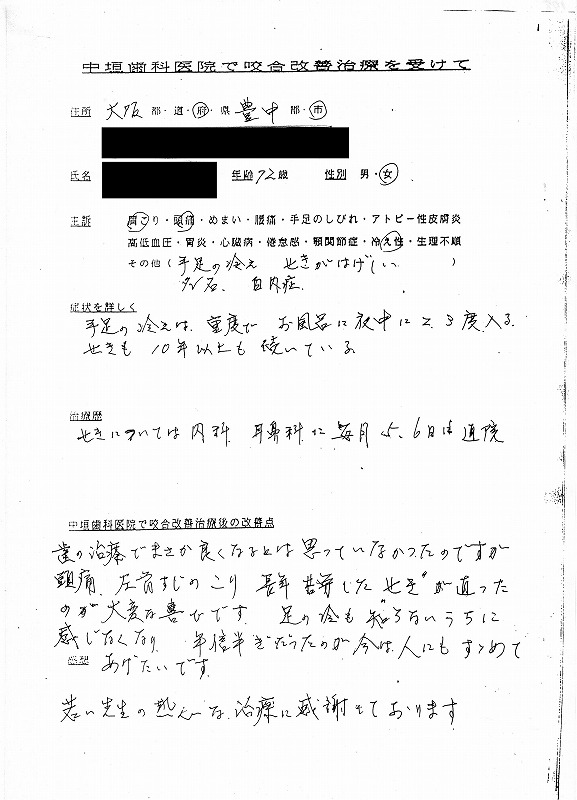 中垣歯科医院で咬合改善治療を受けて
住所 大阪 都・道・府・県 豊中 郡・市
氏名 年齢 72歳 性別 男・女
主訴 肩こり・頭痛・めまい・腰痛・手足のしびれ・アトピー性皮膚炎
高低血圧・胃炎・心臓病・倦怠感・顎関節症・冷え性・生理不順
その他( 手足の冷え せきがはげしい )
白内症
症状を詳しく
手足の冷えは、重度で お風呂に夜中に2、3度入る
せきも 10年以上も続いている
治療歴
せきについては内科、耳鼻科に毎月5、6日は通院
中垣歯科医院で咬合改善治療後の改善点
歯の治療でまさか良くなるとは思っていなかったのですが
頭痛、左首すじのこり 長年苦労したせきが直った
のが大変な喜びです。足の冷も知らないうちに
感じなくなり 半信半ぎだったのが今は人にもすゝめて
感想 あげたいです
若い先生の熱心な治療に感謝しております